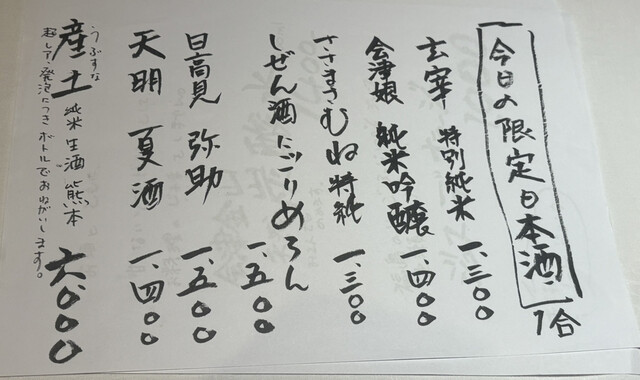 今日の限定日本酒
1合
玄宰 特別純米 一、三〇〇
会津娘 純米吟醸 一、四〇〇
ささまさむね 特純 一、三〇〇
しぜん酒 にごりめろん 一、五〇〇
日高見 弥助 一、五〇〇
天明 夏酒 一、四〇〇
うぶすな
産土 純米 生酒 熊本 六、〇〇〇
超して、発泡につきボトルでおねがいします。